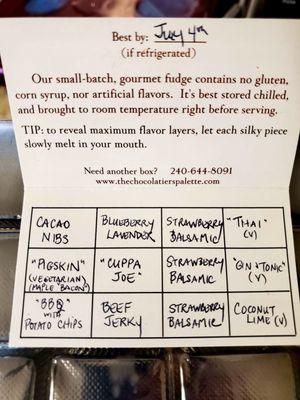 Best by: July 4th
(if refrigerated)
Our small-batch, gourmet fudge contains no gluten,
corn syrup, nor artificial flavors. It's best stored chilled,
and brought to room temperature right before serving.
TIP: to reveal maximum flavor layers, let each silky piece
slowly melt in your mouth.
Need another box? 240-644-8091
www.thechocolatierspalette.com
CACAO NIBS
BLUEBERRY LAVENDER
STRAWBERRY BALSAMIC
"THAI" (V)
"PIGSKIN" (VEGETARIAN) (MAPLE "BACON")
"CUPPA JOE"
STRAWBERRY BALSAMIC
"GIN & TONIC" (V)
"BBQ" WITH POTATO CHIPS
BEEF JERKY
STRAWBERRY BALSAMIC
COCONUT LIME (V)